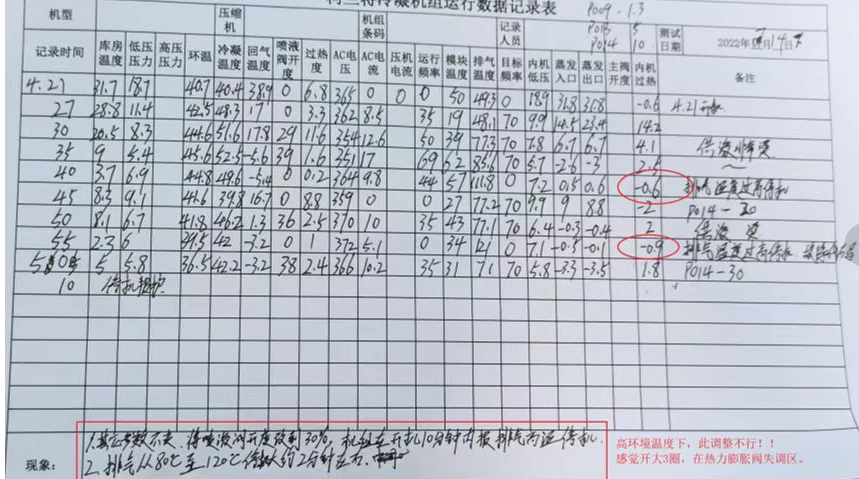 冷凝机组运行数据记录表
P009-1.3
机型 压缩机 机组条码 记录人员 P013 5 P014 10 测试日期 2022年 月14日
记录时间 库房温度 低压压力 高压压力 环温 冷凝温度 回气温度 喷液阀开度 过热度 AC电压 AC电流 压机电流 运行频率 模块温度 排气温度 目标频率 内机低压 蒸发入口 蒸发出口 主阀开度 内机过热 备注
4.21 31.7 18.7 40.7 40.4 38.9 0 6.8 365 0 0 0 50 49.3 0 18.9 31.8 31.8 -0.6 4.21开机
27 28.8 11.4 42.5 48.3 17 0 3.3 362 8.5 35 19 48.1 70 9.9 14.5 23.4 14.2
30 20.5 8.3 44.6 51.6 17.8 29 11.6 354 12.6 50 39 77.3 70 7.8 6.7 6.7 4.1
35 9 5.4 45.6 52.5 -5.6 39 1.6 351 17 69 62 85.6 70 5.7 -2.6 -3 2.5
40 3.7 6.9 44.8 49.6 -5.4 0 0.2 364 9.8 44 57 111.8 0 7.2 0.5 0.6 -0.6 排气温度过高停机
45 8.3 9.1 41.6 39.8 16.7 0 8.8 359 0 0 27 77.2 70 9.9 9 8.8 -2 P014-30
50 8.1 6.7 41.8 46.2 1.3 36 2.5 370 10 35 43 77.1 70 6.4 -0.3 -0.4 2
55 2.3 6 39.5 42 -3.2 0 1 372 5.1 0 34 121 0 7.1 -0.5 -0.1 -0.9 排气温度过高停机
5:05 5 5.8 36.5 42.2 -3.2 38 2.4 366 10.2 35 31 71 70 5.8 -3.3 -3.5 1.8 P014-30
10 停机
现象:
1.其它参数不变,将喷液阀开度改到30%,机组在开机10分钟内报排气高温停机.
2.排气从80℃至120℃ 大约2分钟左右.
高环境温度下,此调整不行!!
感觉开大3圈,在热力膨胀阀失调区。